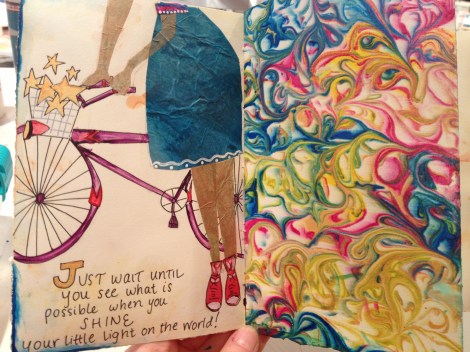 JUST WAIT UNTIL
you see what is
possible when you
SHINE
your little light on the world!